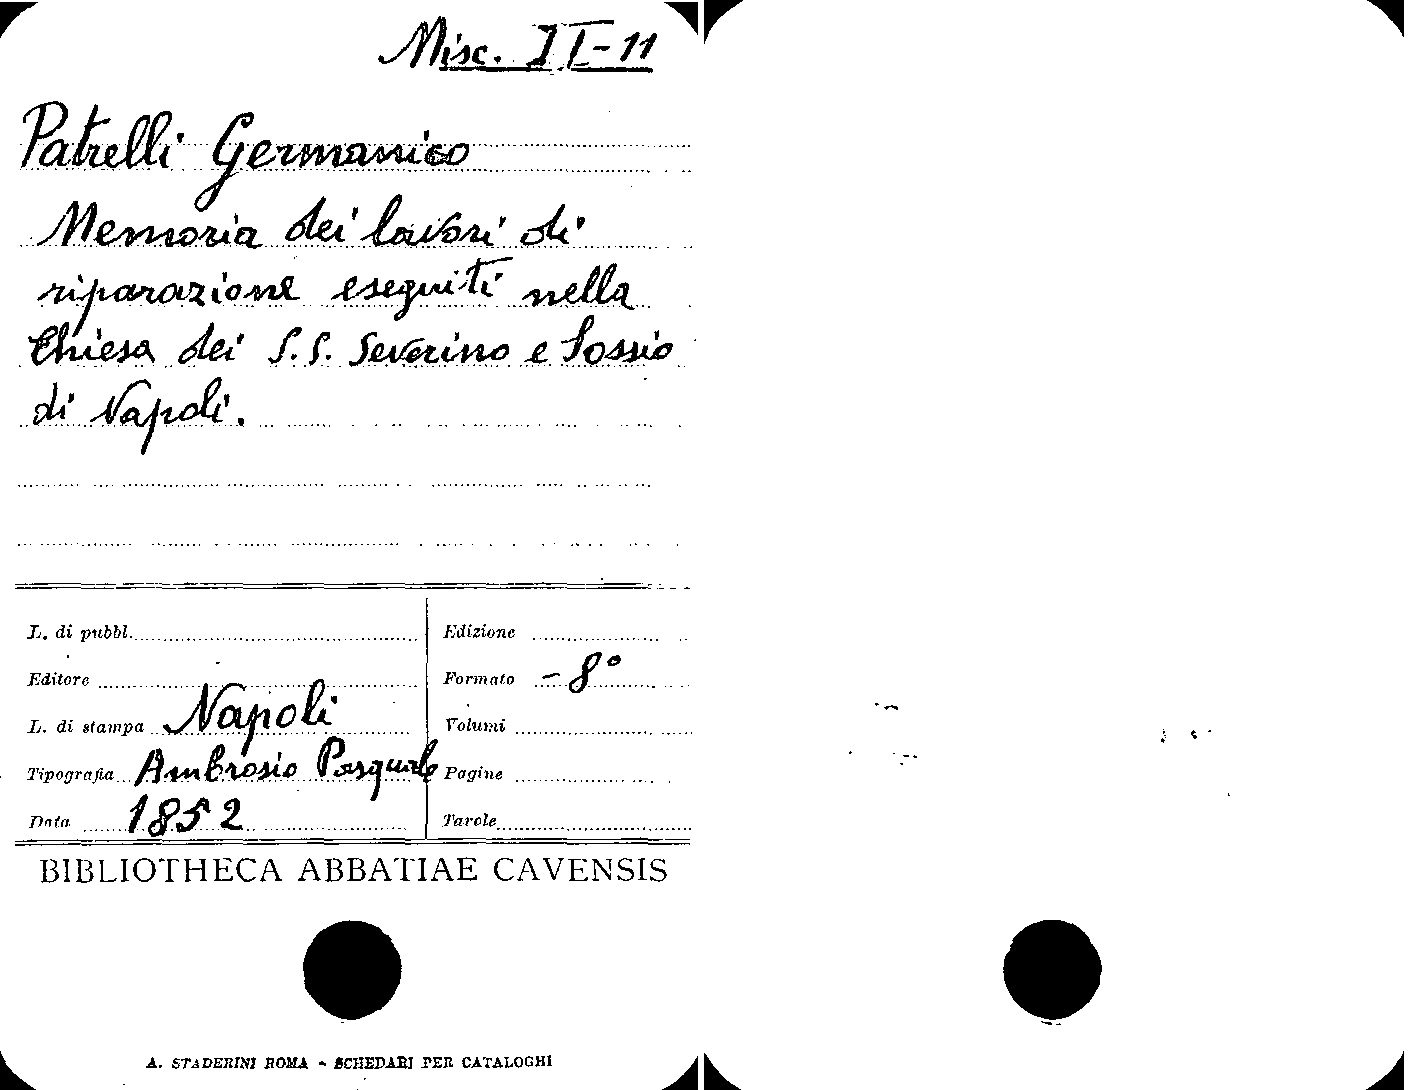 Misc. II-11
Patrelli Germanico
Memoria dei lavori di
riparazione eseguiti nella
Chiesa dei S.S. Severino e Sossio
di Napoli.
L. di pubbl.
Edizione
Editore
Formato - 8°
L. di stampa Napoli
Volumi
Tipografia Ambrosio Pasquale
Pagine
Data 1852
Tavole
BIBLIOTHECA ABBATIAE CAVENSIS
A. STADERINI ROMA - SCHEDARI PER CATALOGHI